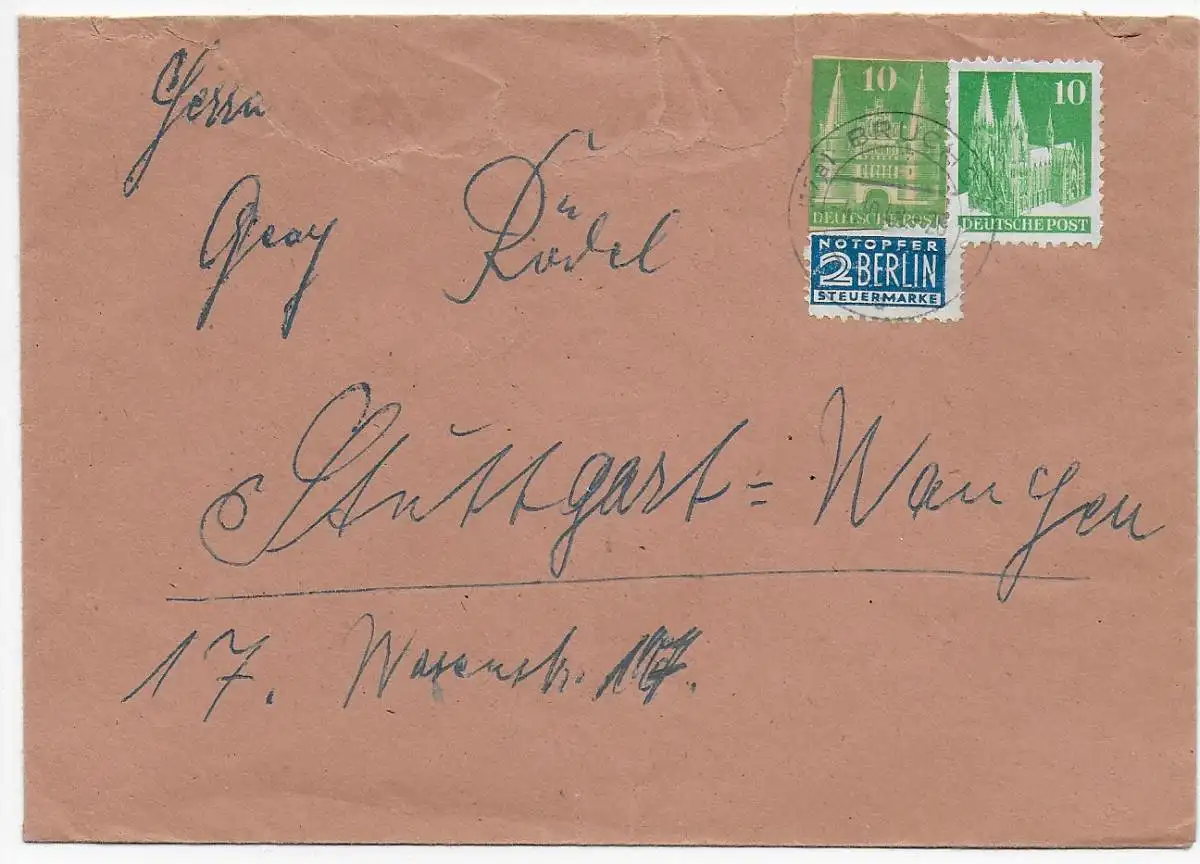 Herrn
Georg Rödel
Stuttgart = Wangen
17. Wasenstr. 17.
10
DEUTSCHE POST
10
DEUTSCHE POST
NOTOPFER
2 BERLIN
STEUERMARKE
BRUCH